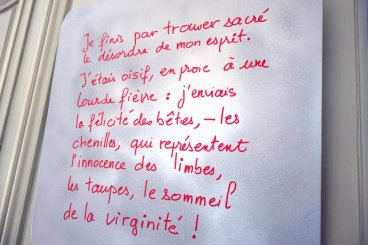 Je finis par trouver sacré
le désordre de mon esprit.
J'étais oisif, en proie à une
lourde fièvre : j'enviais
la félicité des bêtes, – les
chenilles, qui représentent
l'innocence des limbes,
les taupes, le sommeil
de la virginité !